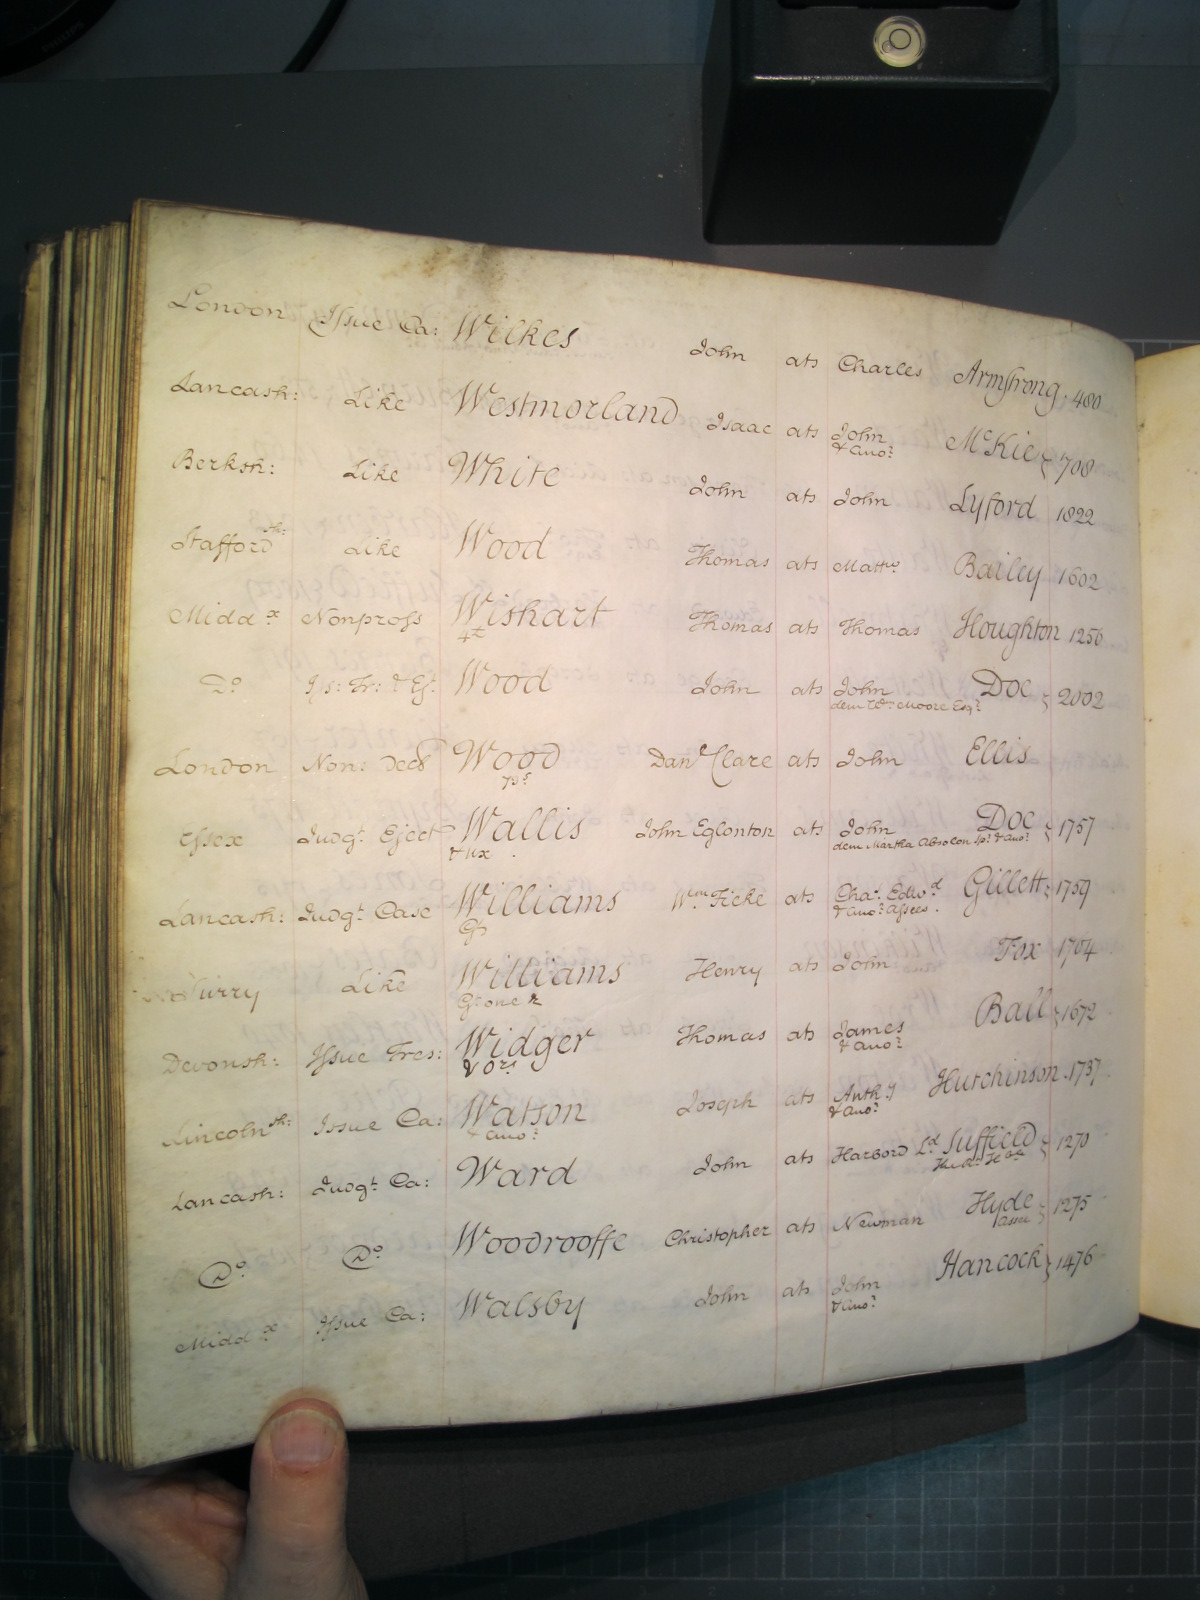 London Issue Ca: Wilkes John ats Charles Armstrong 480
Lancash: Like Westmorland Isaac ats John & ano.r McKie 708
Berksh: Like White John ats John Lyford 1822
Stafford sh: Like Wood Thomas ats Matt.w Bailey 1602
Midd.x Nonpross Wishart Thomas ats Thomas Houghton 1250
Do Iss: Tr: & Ej.t Wood John ats John Doe 2002
dem W.m Moore Esq.r
London Non: Decl Wood Dan.l Clare ats John Ellis
Essex Judg.t Eject Wallis John Eglonton ats John Doe 1757
& Ux dem Martha Absolon Sp.r & ano.r
Lancash: Judg.t Case Williams W.m Ficke ats Cha.s Edw.d Gillett 1759
& ano.r Assees.
Surry Like Williams Henry ats John Fox 1704
G.t one &c
Devonsh: Issue Tres: Widger Thomas ats James Ball 1672
& Ors & ano.r
Lincoln sh: Issue Ca: Watson Joseph ats Anth.y Hutchinson 1737
& ano.r & ano.r
Lancash: Judg.t Ca: Ward John ats Harbord L.d Suffield 1270
Do Do Woodrooffe Christopher ats Newman Hyde 1275
Assee
Midd.x Issue Ca: Walsby John ats John Hancock 1476
& ano.r